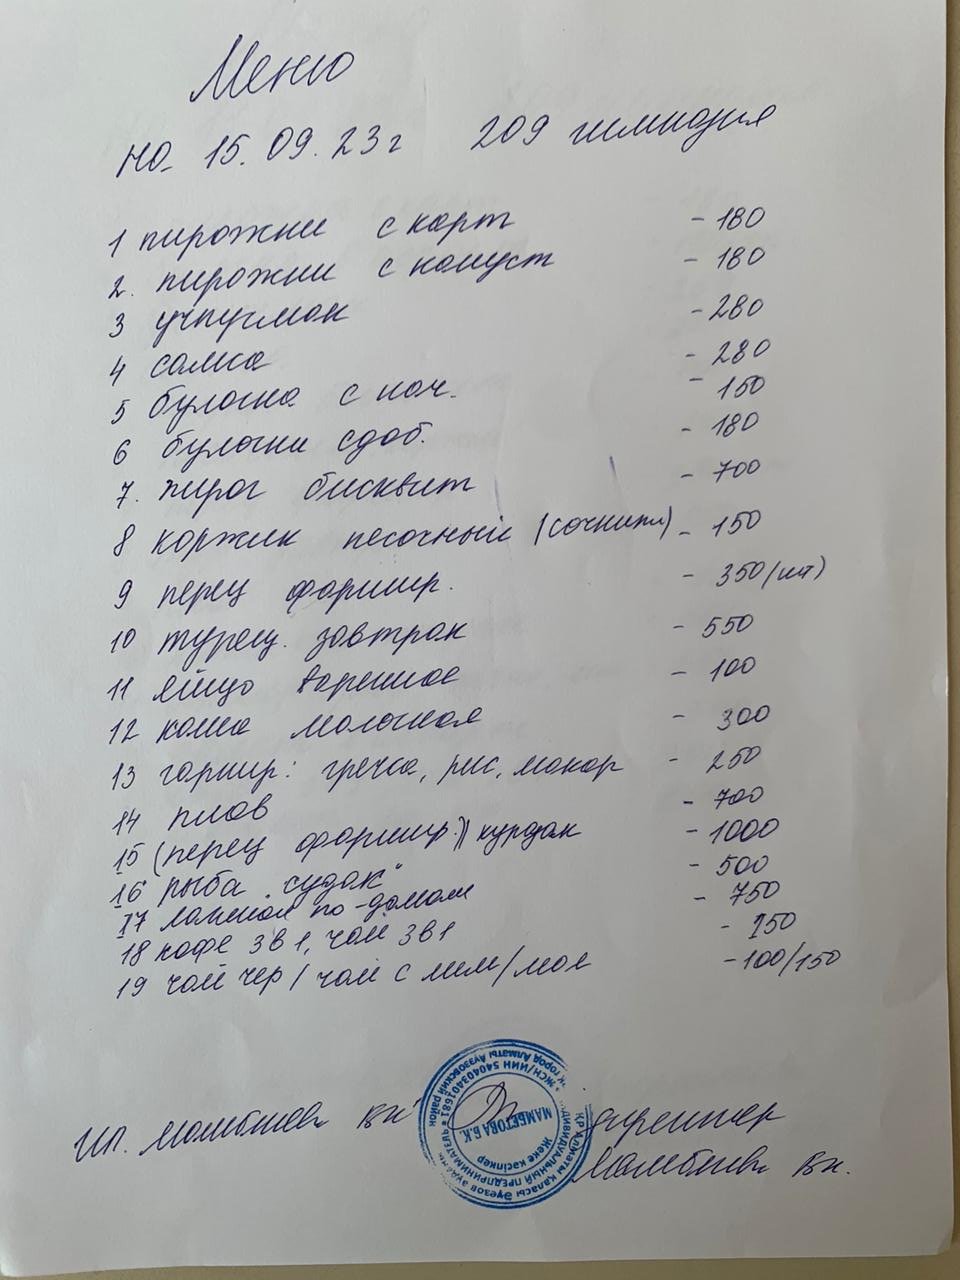 Меню
на 15.09.23г 209 гимназия
1 пирожки с карт - 180
2. пирожки с капуст - 180
3 учпучмак - 280
4 самса - 280
5 булочка с коч. - 150
6 булочки сдоб. - 180
7. пирог бисквит - 700
8 коржик песочный (сочники) - 150
9 перец фаршир. - 350 (шт)
10 турец. завтрак - 550
11 яйцо вареное - 100
12 каша молочная - 300
13 гарнир: гречка, рис, макар - 250
14 плов - 700
15 (перец фаршир.) курдак - 1000
16 рыба "судак" - 500
17 лагман по-домаш - 750
18 кофе 3в1, чай 3в1 - 150
19 чай чер / чай с лим/мол - 100/150
ИП. Мамбетова Б.К. директор
Мамбетова Б.К.
ҚР Алматы қаласы Әуезов ауданы
* ЖСН/ИИН 540403401681 *
г. город Алматы Ауэзовский район
ИНДИВИДУАЛЬНЫЙ ПРЕДПРИНИМАТЕЛЬ
Жеке кәсіпкер
МАМБЕТОВА Б.К.